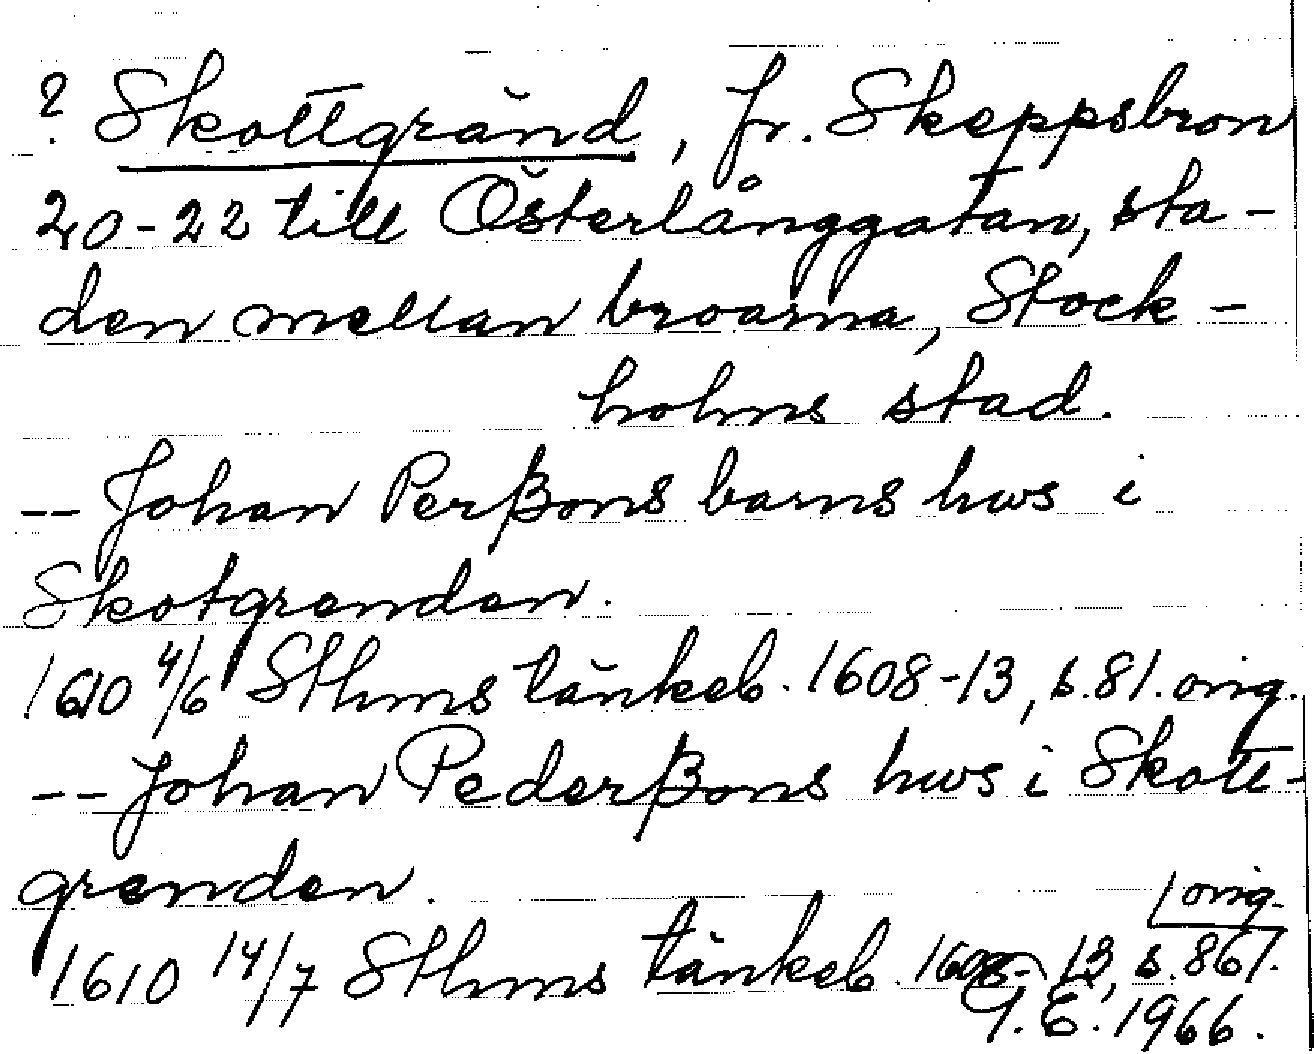 ? Skottgränd, fr. Skeppsbron
20-22 till Österlånggatan, sta-
den mellan broarna, Stock-
holms stad.
-- Johan Perßons barns hws i
Skotgrenden.
1610 4/6 Sthms tänkeb. 1608-13, s. 81. orig.
-- Johan Pederßons hws i Skott-
grenden.
1610 14/7 Sthms tänkeb. 1608-13, s. 867. orig.
1966.